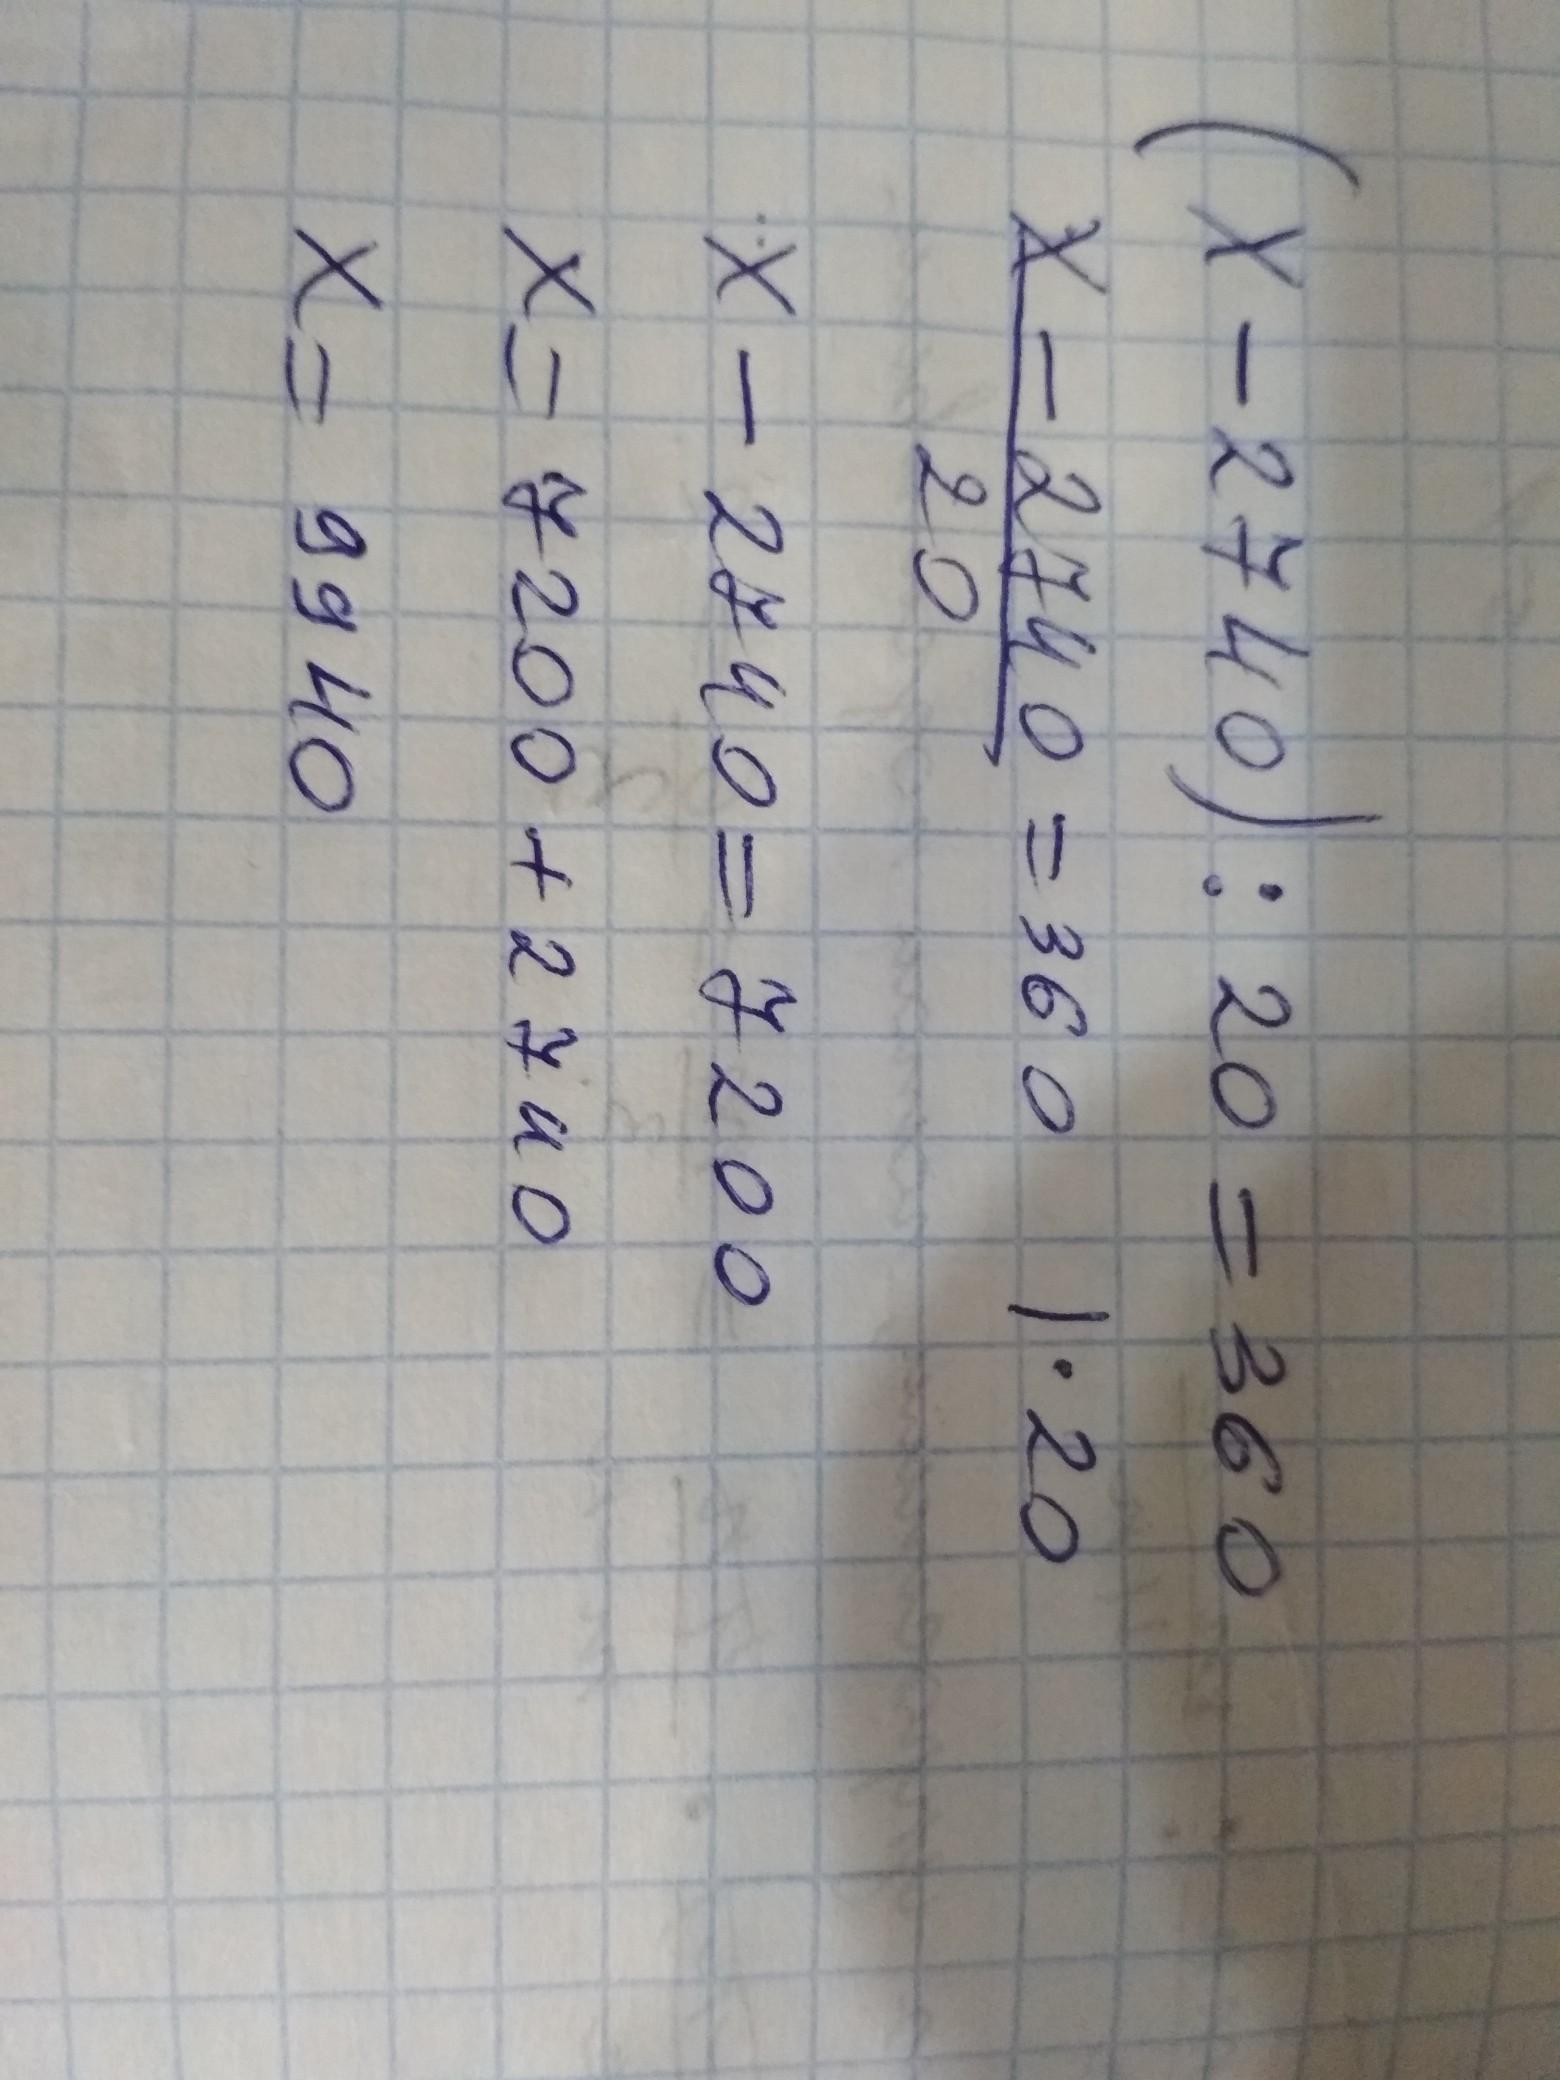 (X - 2740) : 20 = 360
X - 2740 = 360 | · 20
20
X - 2740 = 7200
X = 7200 + 2740
X = 9940